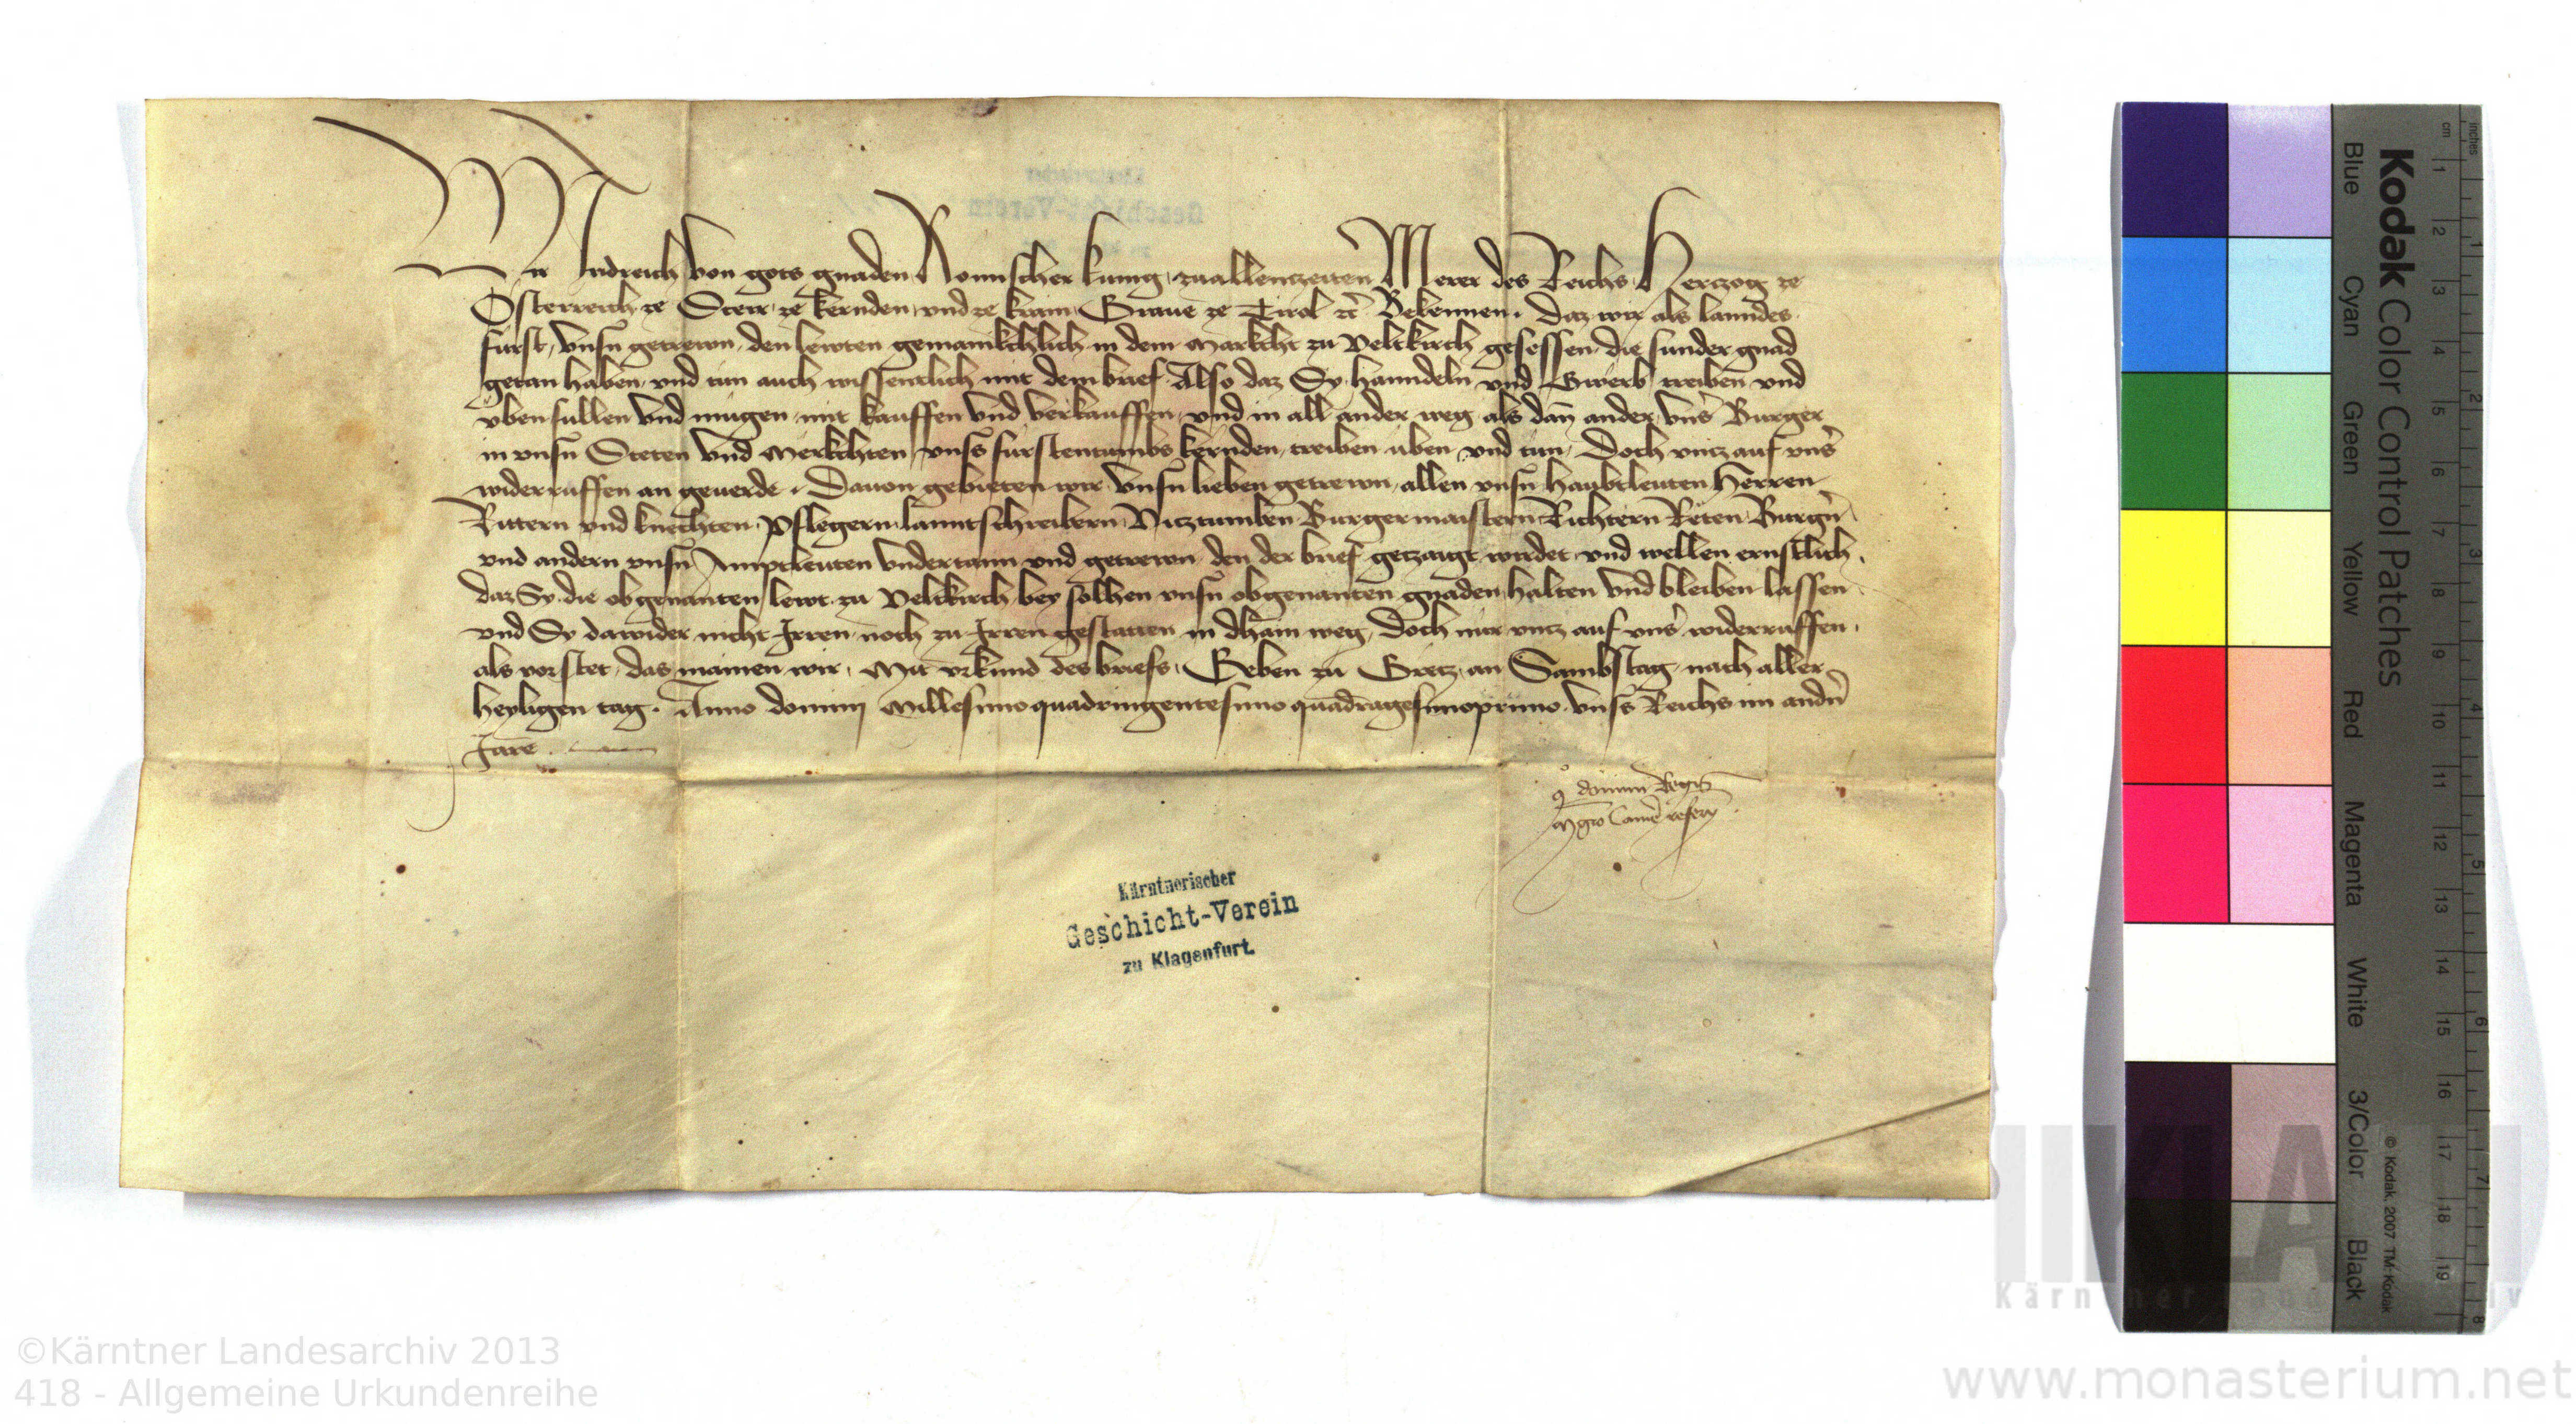 Wir Fridreich von gots gnaden Romischer kunig zuallenczeiten Merer des Reichs Herczog ze
Osterreich ze Steir ze kernden vnd ze krain Graue ze Tirol etc̄ Bekennen. daz wir als lanndes
furst, vnsn̄ getrewn, den lewten gemainkchlich in dem Markcht zu Veltkirch gesessen, die sunder gnad
getan haben, vnd tun auch wissentlich mit dem brief. Also daz Sy hanndeln vnd Gwerb treiben vnd
vben sullen vnd mugen, mit kauffen vnd verkauffen, vnd in all ander weg als dan̄ ander vns̄ Burger
in vnsn̄ Steten vnd Merkchten, vnss̄ furstentumbs kernden, treiben uben vnd tun, Doch vncz auf vns̄
widerruffen an geuerde. Dauon gebieten wir vnsn̄ lieben getrewn, allen vnsn̄ haubtleuten Herren
Rittern vnd knechten, Pflegern lanntschreibern Vicztumben Burgermaistern Richtern Reten Burgn̄
vnd andern vnsn̄ Amptleuten vndertann vnd getrewn, den der brief geczaigt wirdet, vnd wellen ernstlich,
daz Sy die obgenanten lewt zu Veltkirch bey solhen vnsn̄ obgenanten gnaden halten vnd bleiben lassen
vnd Sy dawider nicht Irren, noch zu Irren gestatten in dhain weg, Doch nur vncz auf vns̄ widerruffen,
als vorstet, das mainen wir, Mit vrkund des briefs, Geben zu Gretz, an Sambstag nach aller
heyligen tag. Anno domini Millesimo quadringentesimo quadragesimoprimo, vnss̄ Reichs im andn̄
Jare.
domini Regis
Kärntnerischer
Geschicht-Verein
zu Klagenfurt.
Kodak Color Control Patches
Blue Cyan Green Yellow Red Magenta White 3/Color Black
inches 1 2 3 4 5 6 7 8
cm 1 2 3 4 5 6 7 8 9 10 11 12 13 14 15 16 17 18 19
© Kodak, 2007 TM: Kodak
©Kärntner Landesarchiv 2013
418 - Allgemeine Urkundenreihe
www.monasterium.net